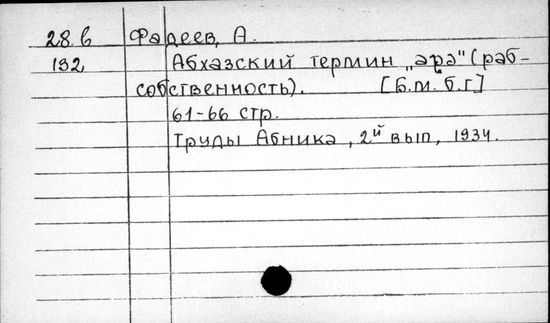 28.б Фадеев, А.
132 Абхазский термин „ара" (раб-
собственность). [б.м. б.г]
61-66 стр.
Труды Абника, 2й вып, 1934.